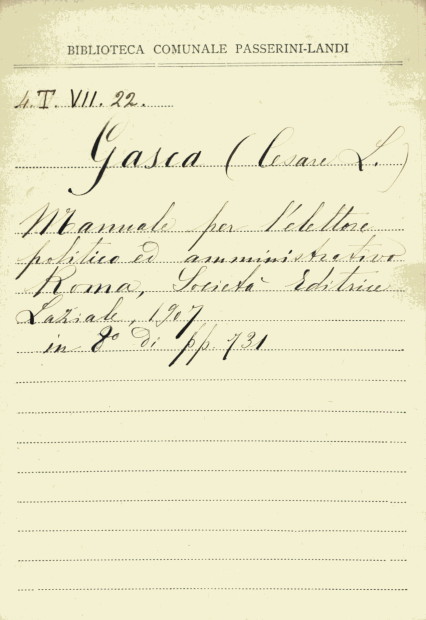 BIBLIOTECA COMUNALE PASSERINI-LANDI
4. T. VII. 22.
Gasca (Cesare L.)
Manuale per l'elettore
politico ed amministrativo
Roma, Società Editrice
Laziale, 1907
in 8º di pp. 731